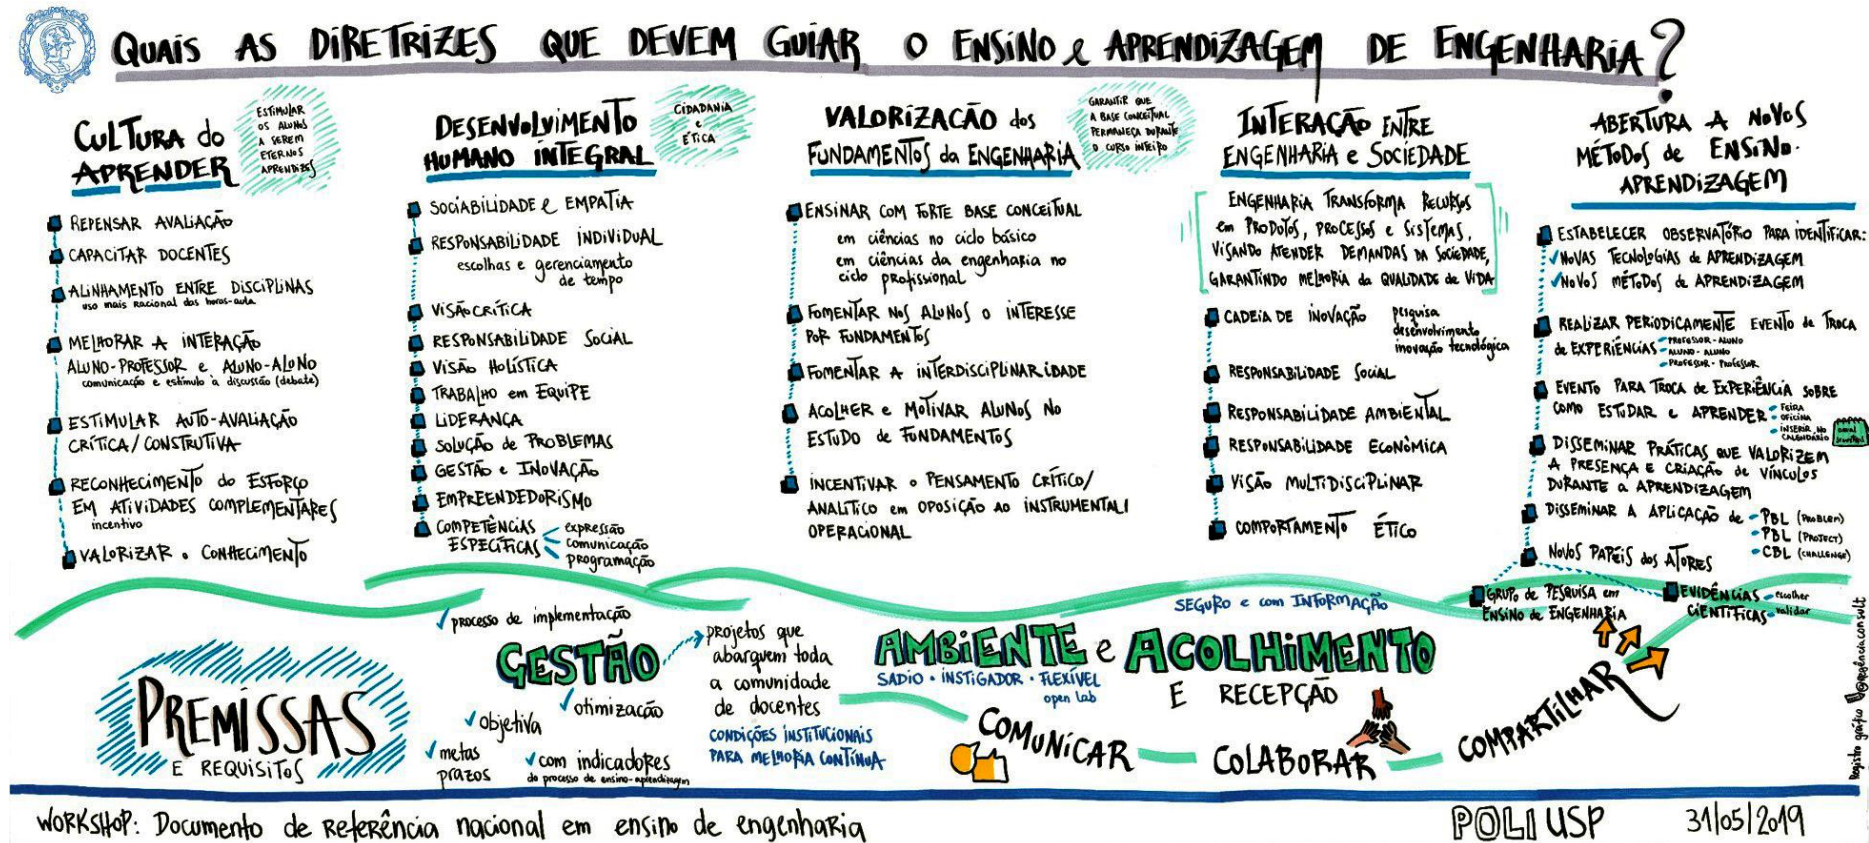 QUAIS AS DIRETRIZES QUE DEVEM GUIAR O ENSINO e APRENDIZAGEM DE ENGENHARIA?
CULTURA do
APRENDER
ESTIMULAR
OS ALUNOS
A SEREM
ETERNOS
APRENDIZES
REPENSAR AVALIAÇÃO
CAPACITAR DOCENTES
ALINHAMENTO ENTRE DISCIPLINAS
uso mais racional das horas-aula
MELHORAR A INTERAÇÃO
ALUNO-PROFESSOR e ALUNO-ALUNO
comunicação e estímulo à discussão (debate)
ESTIMULAR AUTO-AVALIAÇÃO
CRÍTICA/CONSTRUTIVA
RECONHECIMENTO do ESFORÇO
EM ATIVIDADES COMPLEMENTARES
incentivo
VALORIZAR o CONHECIMENTO
DESENVOLVIMENTO
HUMANO INTEGRAL
CIDADANIA
e
ÉTICA
SOCIABILIDADE e EMPATIA
RESPONSABILIDADE INDIVIDUAL
escolhas e gerenciamento
de tempo
VISÃO CRÍTICA
RESPONSABILIDADE SOCIAL
VISÃO HOLÍSTICA
TRABALHO em EQUIPE
LIDERANÇA
SOLUÇÃO de PROBLEMAS
GESTÃO e INOVAÇÃO
EMPREENDEDORISMO
COMPETÊNCIAS
ESPECÍFICAS
expressão
comunicação
programação
VALORIZAÇÃO dos
FUNDAMENTOS da ENGENHARIA
GARANTIR QUE
A BASE CONCEITUAL
PERMANEÇA DURANTE
O CURSO INTEIRO
ENSINAR COM FORTE BASE CONCEITUAL
em ciências no ciclo básico
em ciências da engenharia no
ciclo profissional
FOMENTAR NOS ALUNOS O INTERESSE
POR FUNDAMENTOS
FOMENTAR A INTERDISCIPLINARIDADE
ACOLHER e MOTIVAR ALUNOS NO
ESTUDO de FUNDAMENTOS
INCENTIVAR o PENSAMENTO CRÍTICO/
ANALÍTICO em OPOSIÇÃO AO INSTRUMENTAL/
OPERACIONAL
INTERAÇÃO ENTRE
ENGENHARIA e SOCIEDADE
ENGENHARIA TRANSFORMA RECURSOS
em PRODUTOS, PROCESSOS e SISTEMAS,
VISANDO ATENDER DEMANDAS DA SOCIEDADE,
GARANTINDO MELHORIA da QUALIDADE de VIDA
CADEIA DE INOVAÇÃO
pesquisa
desenvolvimento
inovação tecnológica
RESPONSABILIDADE SOCIAL
RESPONSABILIDADE AMBIENTAL
RESPONSABILIDADE ECONÔMICA
VISÃO MULTIDISCIPLINAR
COMPORTAMENTO ÉTICO
ABERTURA A NOVOS
MÉTODOS de ENSINO-
APRENDIZAGEM
ESTABELECER OBSERVATÓRIO PARA IDENTIFICAR:
NOVAS TECNOLOGIAS de APRENDIZAGEM
NOVOS MÉTODOS de APRENDIZAGEM
REALIZAR PERIODICAMENTE EVENTO de TROCA
de EXPERIÊNCIAS
PROFESSOR-ALUNO
ALUNO-ALUNO
PROFESSOR-PROFESSOR
EVENTO PARA TROCA de EXPERIÊNCIA SOBRE
COMO ESTUDAR e APRENDER
FEIRA
OFICINA
INSERIR NO
CALENDÁRIO
DISSEMINAR PRÁTICAS QUE VALORIZEM
A PRESENÇA E CRIAÇÃO de VÍNCULOS
DURANTE a APRENDIZAGEM
DISSEMINAR A APLICAÇÃO de
PBL (PROBLEM)
PBL (PROJECT)
CBL (CHALLENGE)
NOVOS PAPÉIS dos ATORES
GRUPO de PESQUISA em
ENSINO de ENGENHARIA
EVIDÊNCIAS
CIENTÍFICAS
escolher
validar
PREMISSAS
E REQUISITOS
processo de implementação
GESTÃO
projetos que
abarquem toda
a comunidade
de docentes
CONDIÇÕES INSTITUCIONAIS
PARA MELHORIA CONTÍNUA
objetiva
otimização
metas
prazos
com indicadores
do processo de ensino-aprendizagem
SEGURO e com INFORMAÇÃO
AMBIENTE e ACOLHIMENTO
SADIO · INSTIGADOR · FLEXÍVEL
open lab
E RECEPÇÃO
COMUNICAR
COLABORAR
COMPARTILHAR
WORKSHOP: Documento de Referência nacional em ensino de engenharia
POLI USP
31/05/2019